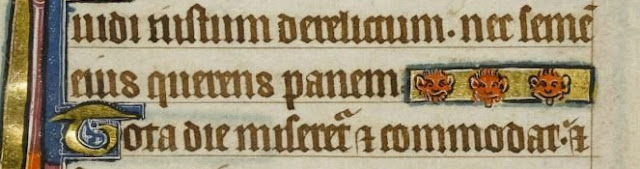 uidi iustum derelictum · nec semē
eius querens panem
Tota die miseret᷑ ⁊ commodat · ⁊